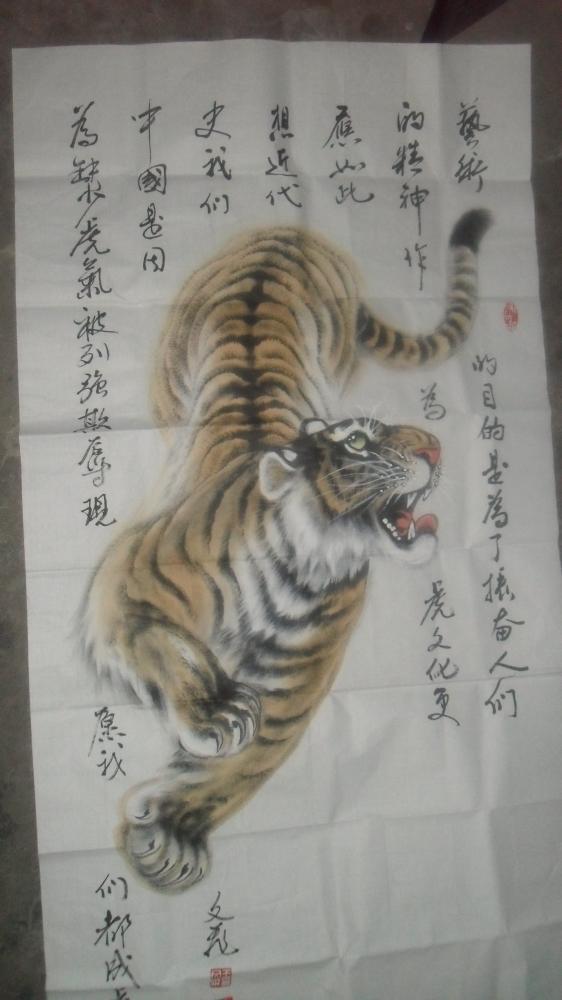 藝術的目的是為了振奋人们
的精神作為虎文化更
應如此
想近代
史我们
中國是因
為缺虎氣被列強欺辱現愿我们都成
文